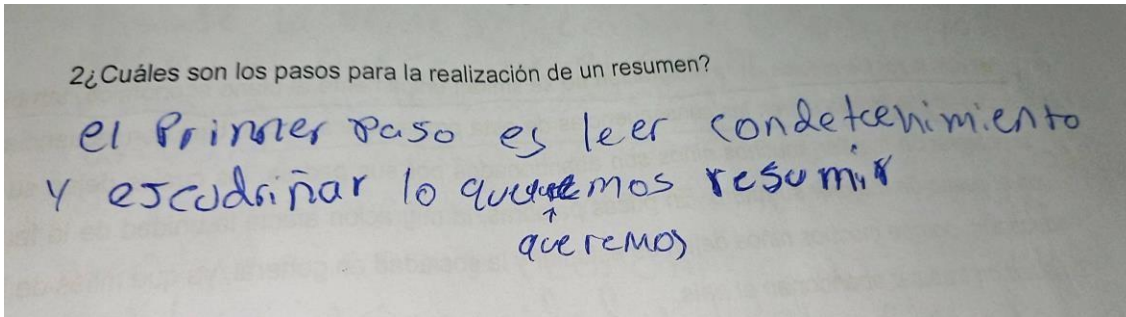 2¿Cuáles son los pasos para la realización de un resumen?
el Primer Paso es leer condetenimiento
y escudriñar lo que mos resumir
queremos